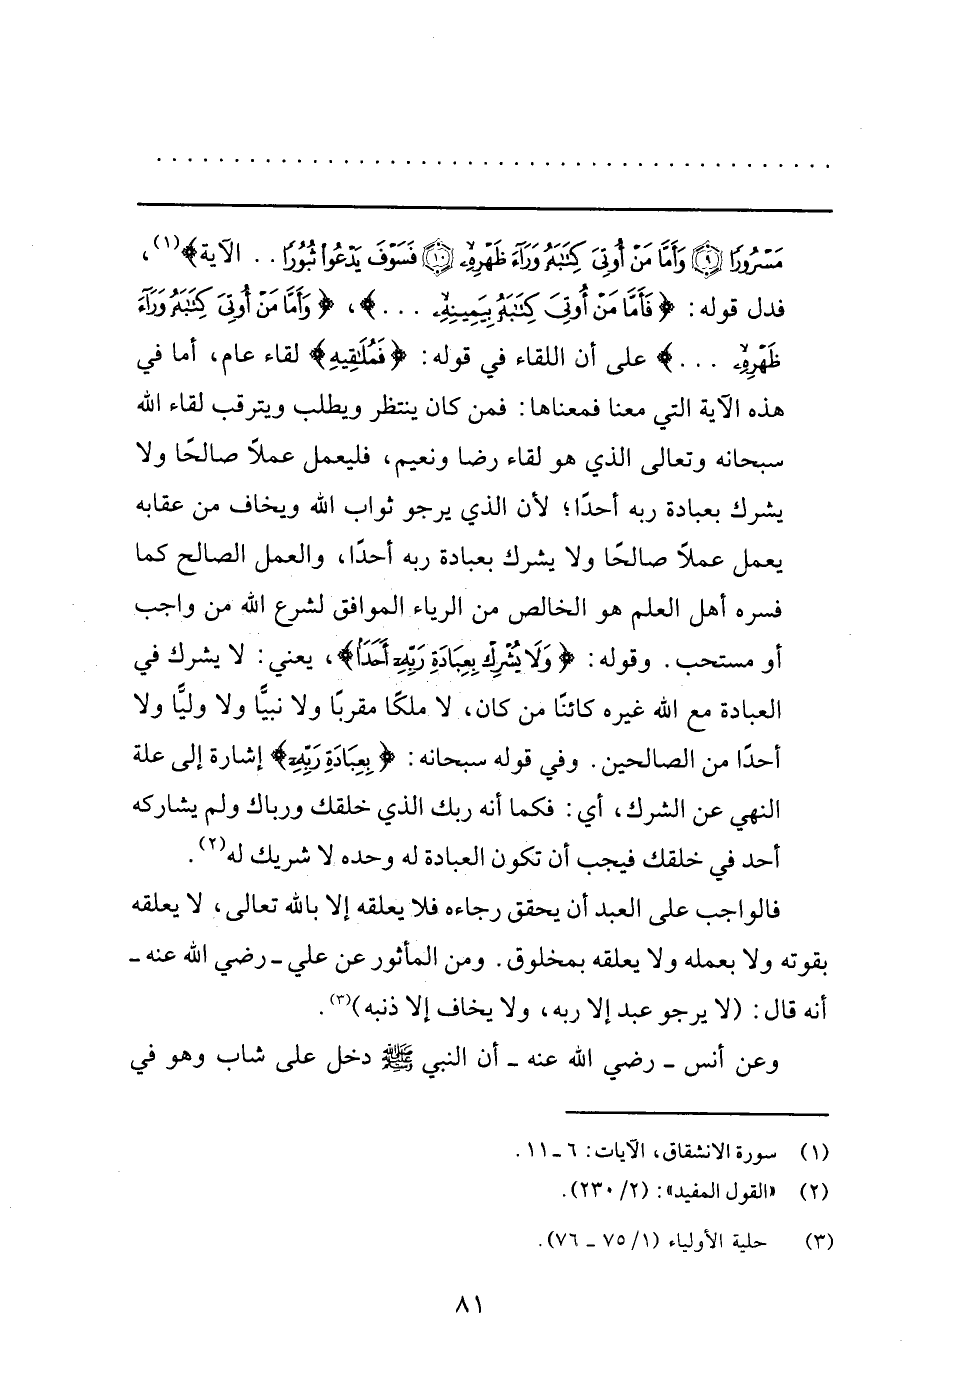 مَسْرُورًا ۝٩ وَأَمَّا مَنْ أُوتِيَ كِتَٰبَهُۥ وَرَآءَ ظَهْرِهِۦ ۝١٠ فَسَوْفَ يَدْعُوا۟ ثُبُورًا . . الآية﴾(١)،
فدل قوله: ﴿فَأَمَّا مَنْ أُوتِيَ كِتَٰبَهُۥ بِيَمِينِهِۦ . . .﴾، ﴿وَأَمَّا مَنْ أُوتِيَ كِتَٰبَهُۥ وَرَآءَ
ظَهْرِهِۦ . . .﴾ على أن اللقاء في قوله: ﴿فَمُلَٰقِيهِ﴾ لقاء عام، أما في
هذه الآية التي معنا فمعناها: فمن كان ينتظر ويطلب ويترقب لقاء الله
سبحانه وتعالى الذي هو لقاء رضا ونعيم، فليعمل عملاً صالحًا ولا
يشرك بعبادة ربه أحدًا؛ لأن الذي يرجو ثواب الله ويخاف من عقابه
يعمل عملاً صالحًا ولا يشرك بعبادة ربه أحدًا، والعمل الصالح كما
فسره أهل العلم هو الخالص من الرياء الموافق لشرع الله من واجب
أو مستحب. وقوله: ﴿وَلَا يُشْرِكْ بِعِبَادَةِ رَبِّهِۦٓ أَحَدًا﴾، يعني: لا يشرك في
العبادة مع الله غيره كائنًا من كان، لا ملكًا مقربًا ولا نبيًّا ولا وليًّا ولا
أحدًا من الصالحين. وفي قوله سبحانه: ﴿بِعِبَادَةِ رَبِّهِۦٓ﴾ إشارة إلى علة
النهي عن الشرك، أي: فكما أنه ربك الذي خلقك ورباك ولم يشاركه
أحد في خلقك فيجب أن تكون العبادة له وحده لا شريك له(٢).
فالواجب على العبد أن يحقق رجاءه فلا يعلقه إلا بالله تعالى، لا يعلقه
بقوته ولا بعمله ولا يعلقه بمخلوق. ومن المأثور عن علي ـ رضي الله عنه ـ
أنه قال: (لا يرجو عبد إلا ربه، ولا يخاف إلا ذنبه)(٣).
وعن أنس ـ رضي الله عنه ـ أن النبي ﷺ دخل على شاب وهو في
(١) سورة الانشقاق، الآيات: ٦ ـ ١١.
(٢) «القول المفيد»: (٢/ ٢٣٠).
(٣) حلية الأولياء (١/ ٧٥ ـ ٧٦).
٨١